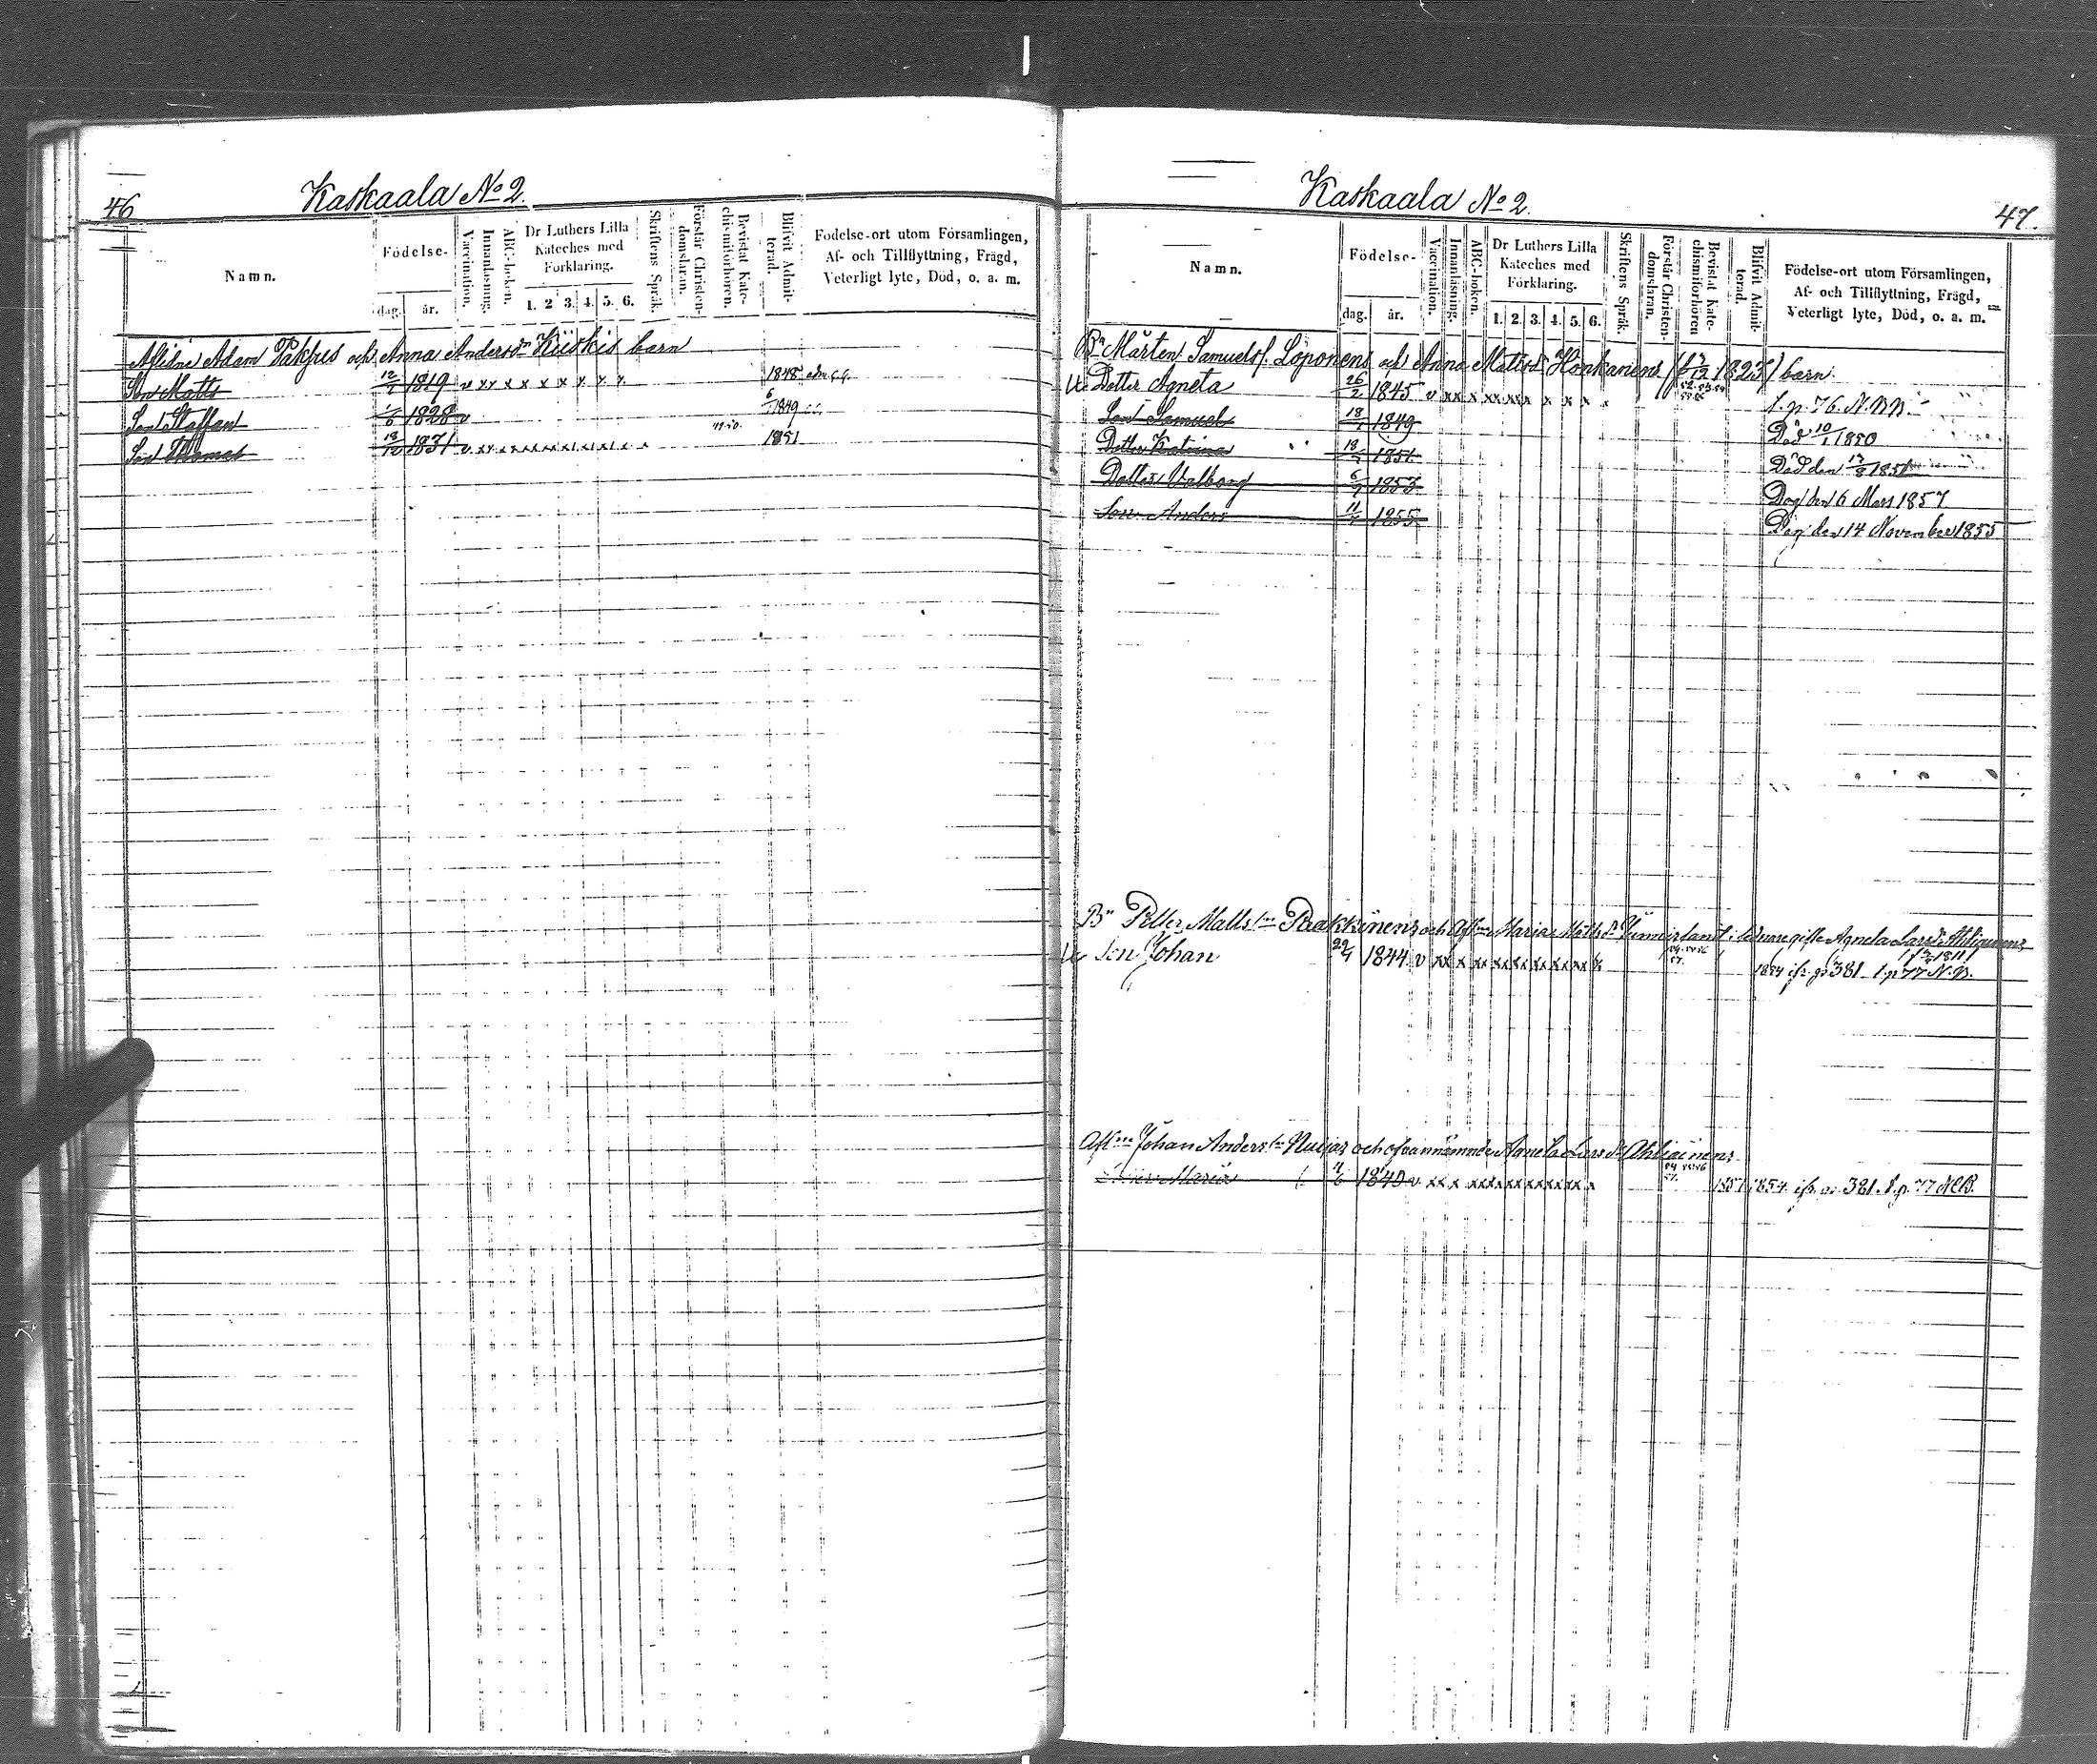 46
Kaskaala No 2.
Namn.
Födelse-
dag.
år.
Vaccination.
Innanläsning.
ABC-boken.
Dr Luthers Lilla
Kateches med
Förklaring.
1. 2 3. 4. 5. 6.
Skriftens Språk.
Förstår Christen-
domsläran.
Bevistat Kate-
chismiförhören.
Blifvit Admit-
terad.
Födelse-ort utom Församlingen,
Af- och Tillflyttning, Frägd,
Veterligt lyte, Död, o. a. m.
Aflidne Adam Pakkus och Anna Andersdr Kiiskis barn
Son Matts 12/1 1819 v xx x x x x x x x 1848
Son Staffan 1828 v 1849
Son Thomas 13/12 1831 v xx 49.50. 1851
Kaskaala No 2.
47.
Namn.
Födelse-
dag.
år.
Vaccination.
Innanläsning.
ABC-boken.
Dr Luthers Lilla
Kateches med
Förklaring.
1. 2. 3. 4. 5. 6.
Skriftens Språk.
Förstår Christen-
domsläran.
Bevistat Kate-
chismiförhören
Blifvit Admit-
terad.
Födelse-ort utom Församlingen,
Af- och Tillflyttning, Frägd,
Veterligt lyte, Död, o. a. m.
Bn Mårten Samuelss. Löponens och Anna Mattsdr Honkanens 1823) barn.
Dotter Agneta 26/2 1845 v xx x xx xx x x x x f. p. 76. N.B.
Son Samuel 18/1 1849 Död 10/1 1850
Dotter Katrina 18 1851 Död den 17/8 1851
Dotter Valborg 6/7 1853 Dog den 6 Mars 1857
Son Anders 11 1855 Dog den 14 November 1855
Bn Petter Matts sn Paakkönens och Afl Marias Mattsdr i sednare gifte Agneta Larsdr Ahtiainens
1811
Son Johan 1844 v xx x xx xx xx xx xx x 1854 ifr. p. 381. f. p 77 N.B.
Afl ne Johan Anders sn och ofvannämnde Agneta Lars dr Ahtiainens
Maria 1840 v xx x 1857 1854. ifr. p. 381. f. p. 77 N.B.